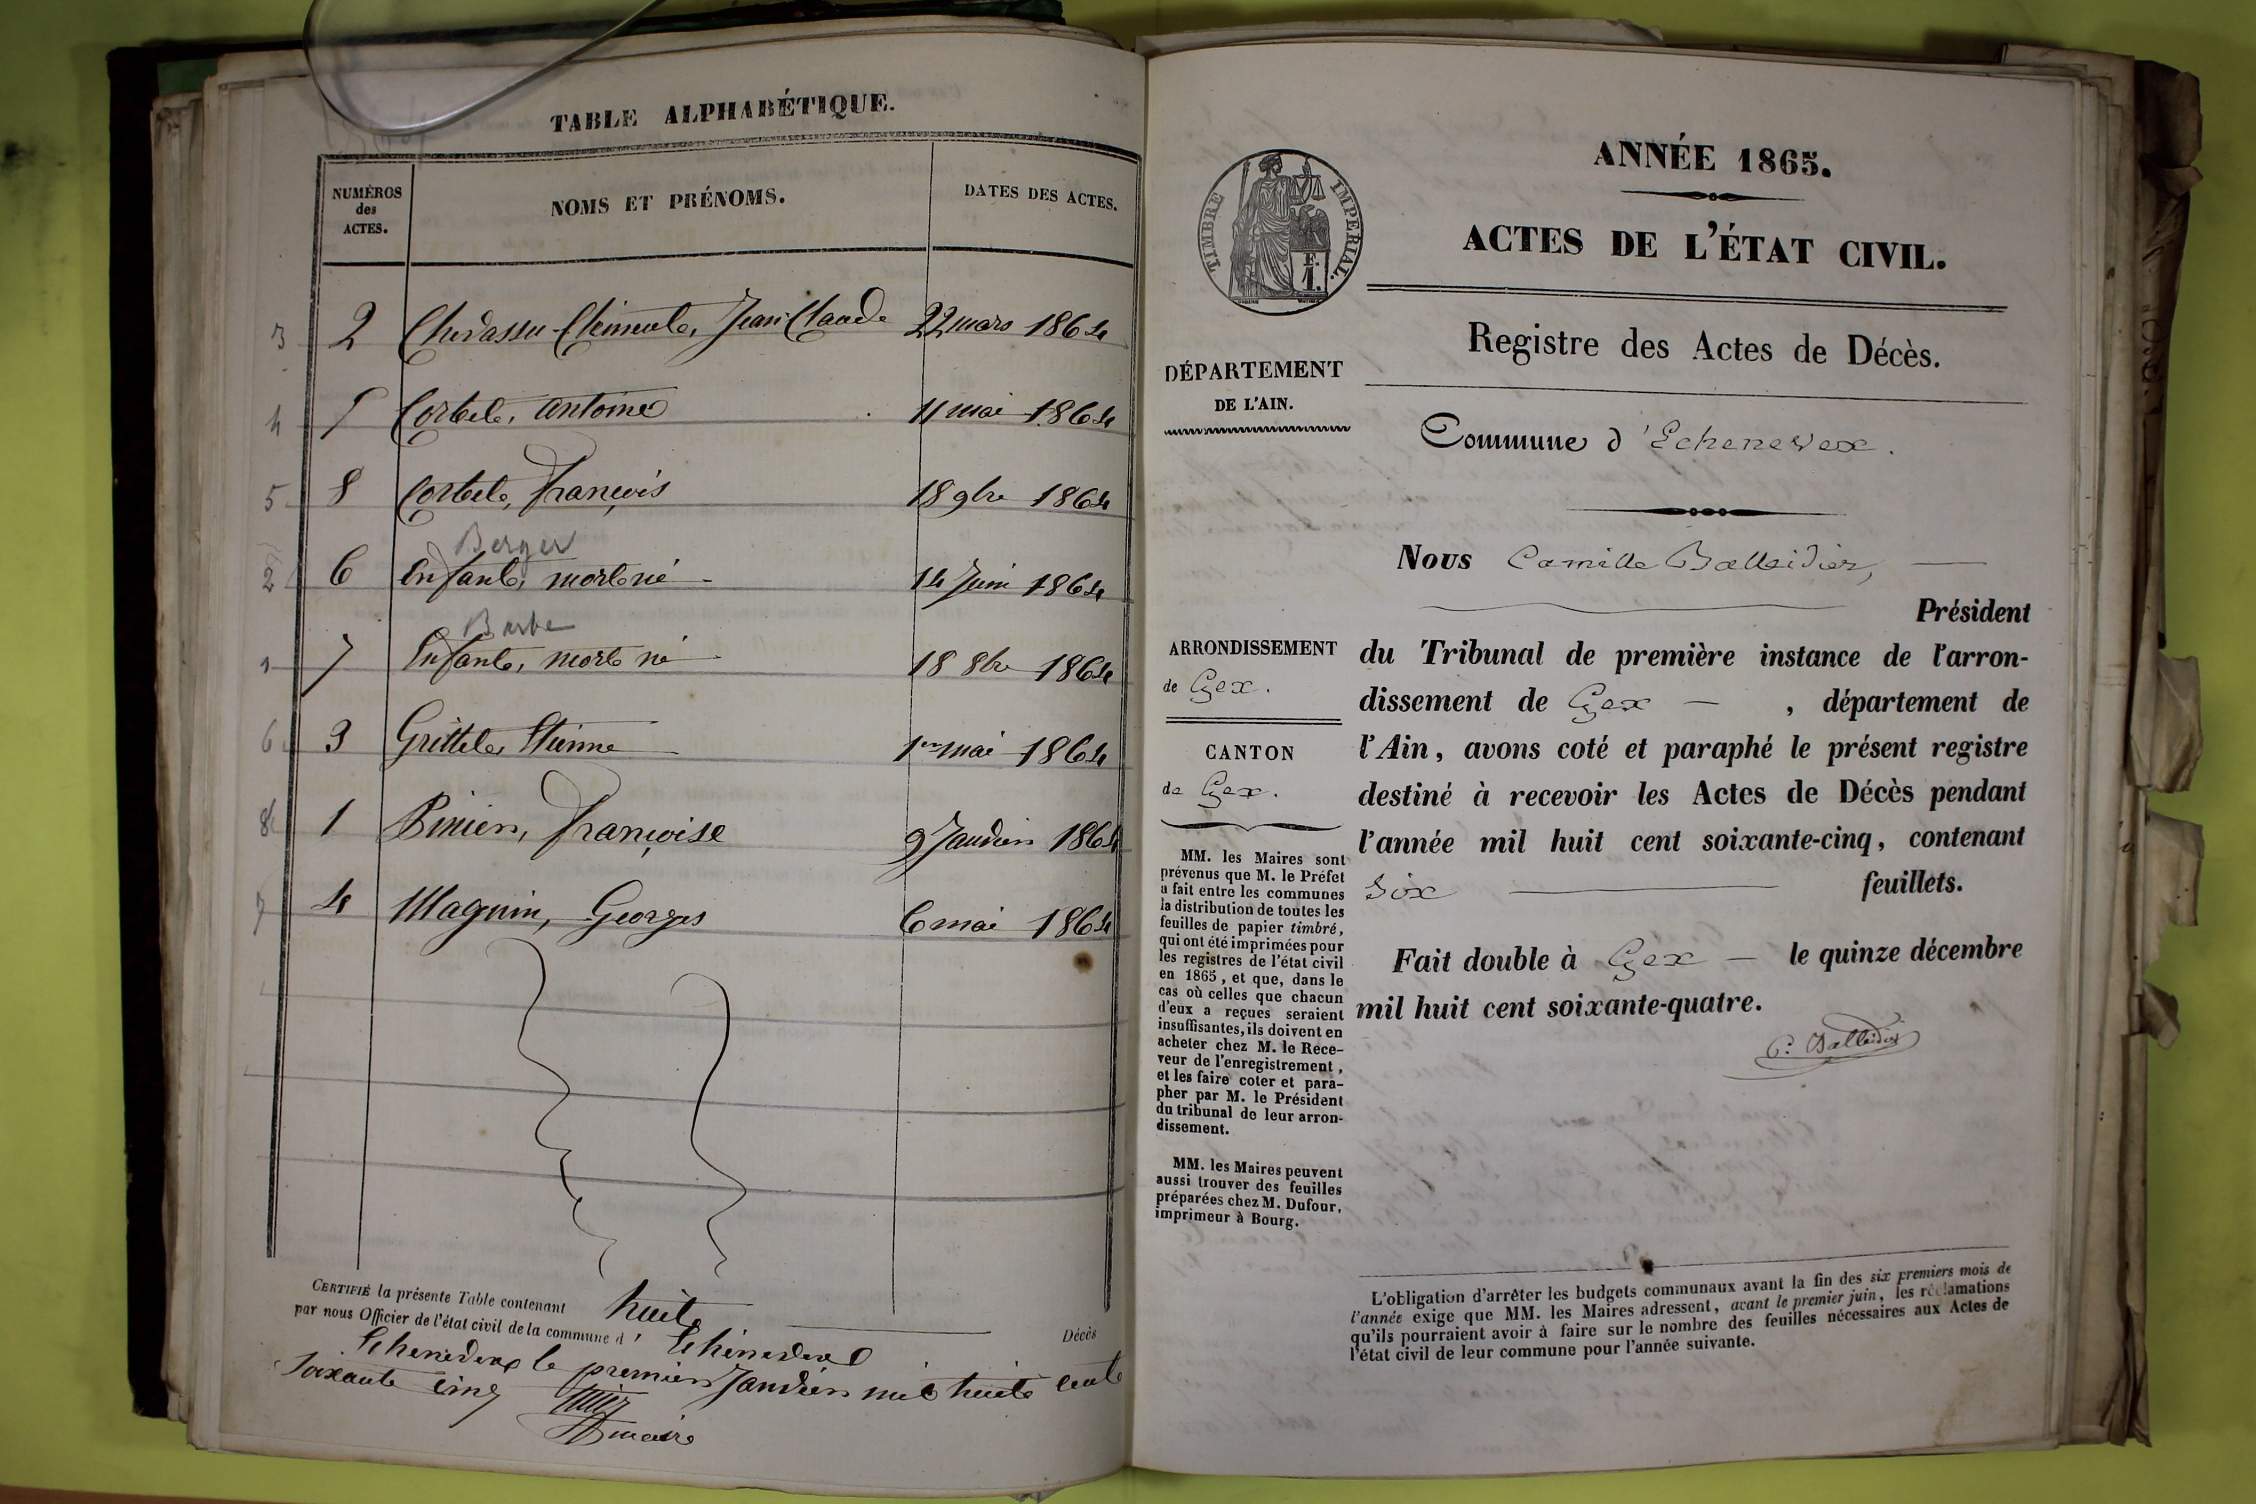 TABLE ALPHABÉTIQUE.
NUMÉROS
des
ACTES.
NOMS ET PRÉNOMS.
DATES DES ACTES.
3 2 Chevassu Clément, Jean Claude 22 mars 1864
4 5 Cortet, Antoine 11 mai 1864
5 8 Cortet, François 18 9bre 1864
Berger
2 6 Enfant, mort né 14 Juin 1864
Barbe
1 7 Enfant, mort né 18 8bre 1864
6 3 Grittet Etienne 1er mai 1864
8 1 Pinier, Françoise 9 Janvier 1864
7 4 Magnin, Georges 6 mai 1864
CERTIFIÉ la présente Table contenant huit Décès
par nous Officier de l'état civil de la commune d' Echenevex
Echenevex le premier Janvier mil huit cent
soixante cinq
maire
TIMBRE IMPÉRIAL.
F.
1.
ANNÉE 1865.
ACTES DE L'ÉTAT CIVIL.
Registre des Actes de Décès.
DÉPARTEMENT
DE L'AIN.
Commune d'Echenevex.
Nous Camille Balleidier,
Président
ARRONDISSEMENT
de Gex.
CANTON
de Gex.
du Tribunal de première instance de l'arron-
dissement de Gex — , département de
l'Ain, avons coté et paraphé le présent registre
destiné à recevoir les Actes de Décès pendant
l'année mil huit cent soixante-cinq, contenant
six feuillets.
Fait double à Gex — le quinze décembre
mil huit cent soixante-quatre.
C. Balleidier
MM. les Maires sont
prévenus que M. le Préfet
a fait entre les communes
la distribution de toutes les
feuilles de papier timbré,
qui ont été imprimées pour
les registres de l'état civil
en 1865, et que, dans le
cas où celles que chacun
d'eux a reçues seraient
insuffisantes, ils doivent en
acheter chez M. le Rece-
veur de l'enregistrement,
et les faire coter et para-
pher par M. le Président
du tribunal de leur arron-
dissement.
MM. les Maires peuvent
aussi trouver des feuilles
préparées chez M. Dufour,
imprimeur à Bourg.
L'obligation d'arrêter les budgets communaux avant la fin des six premiers mois de
l'année exige que MM. les Maires adressent, avant le premier juin, les réclamations
qu'ils pourraient avoir à faire sur le nombre des feuilles nécessaires aux Actes de
l'état civil de leur commune pour l'année suivante.